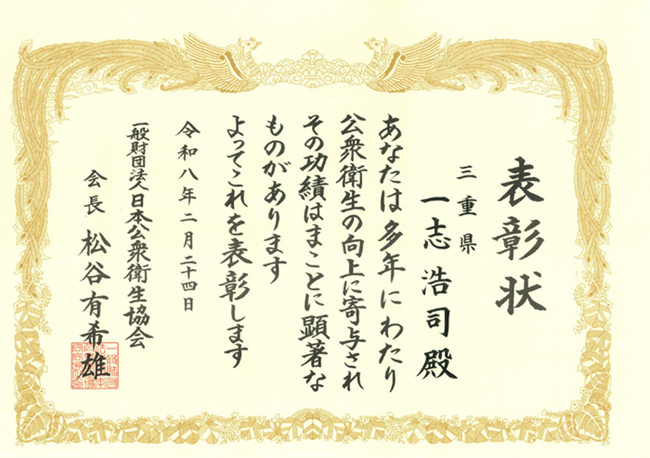 表彰状
三重県
一志浩司殿
あなたは多年にわたり
公衆衛生の向上に寄与され
その功績はまことに顕著な
ものがあります
よってこれを表彰します
令和八年二月二十四日
一般財団法人日本公衆衛生協会
会長 松谷有希雄